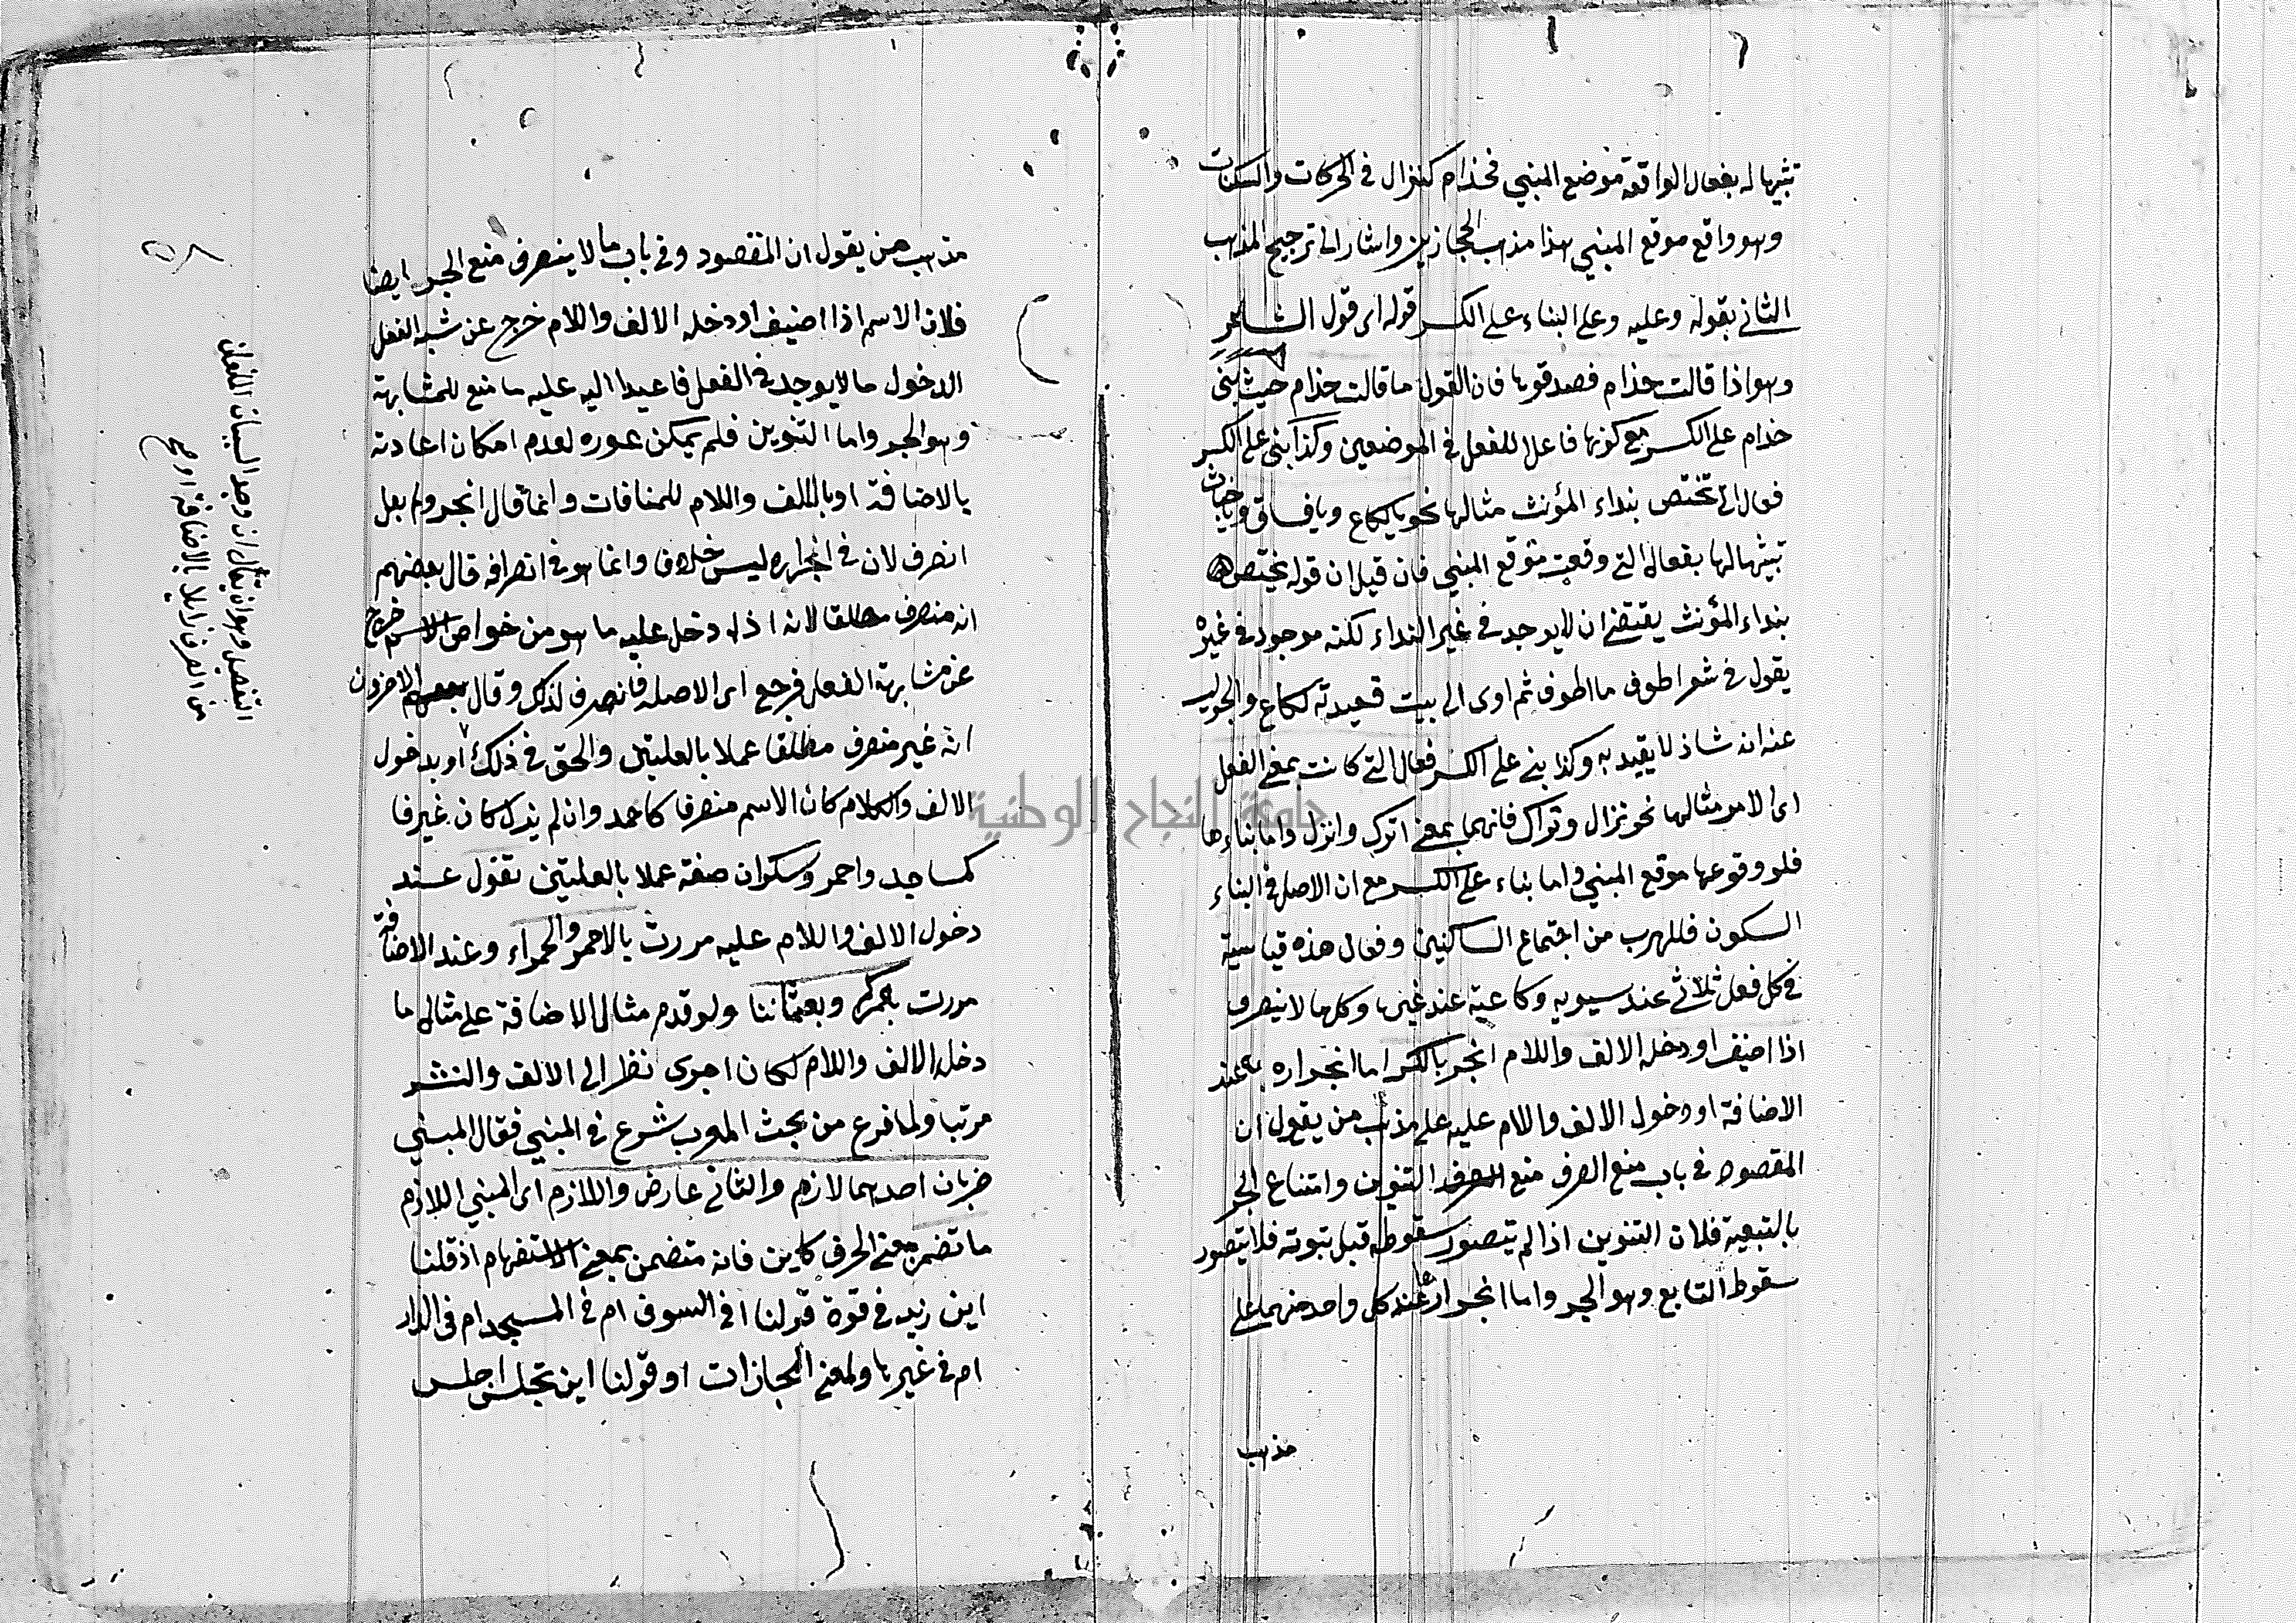 تشبيها له بفعال الواقعة موضع المبني فحذام كنزال في الحركات والسكنات
وهو واقع موقع المبني هذا مذهب الحجازيين واشار الى ترجيح المذهب
الثاني بقوله وعليه وعلى البناء على الكسر قوله اى قول الشاعر
وهو اذا قالت حذام فصدقوها فان القول ما قالت حذام حيث بنى
حذام على الكسر مع كونها فاعلا للفعل في الموضعين وكذا بنى على الكسر
فعال التي تختص بنداء المؤنث مثالها نحو يا لكاع ويا فساق ويا خباث
تشبيها لها بفعال التي وقعت موقع المبني فان قيل ان قوله تختص
بنداء المؤنث يقتضي ان لا يوجد في غير النداء لكنه موجود في غيره
يقول في شعر اطوف ما اطوف ثم اوى الى بيت قعيدته لكاع والجواب
عنه انه شاذ لا يقيد به وكذا بني على الكسر فعال التي كانت بمعنى الفعل
اى الامر مثالها نحو نزال وتراك فانهما بمعنى اترك وانزل واما بناءها
فلوقوعها موقع المبني واما بناء على الكسر مع ان الاصل في البناء
السكون فللهرب من اجتماع الساكنين وفعال هذه قياسية
في كل فعل ثلاثي عند سيبويه وكاعية عند غيرها وكلها لا ينصرف
اذا اضيف او دخله الالف واللام انجر بالكسر اما انجراره عند
الاضافة او دخول الالف واللام عليه على مذهب من يقول ان
المقصود في باب منع الصرف منع التنوين وامتناع الجر
بالتبعية فلان التنوين اذا لم يتصور سقوطه قبل ثبوته فلا يتصور
سقوط التابع وهو الجر واما انجراره عند كل واحد منهما على
مذهب
مذهب من يقول ان المقصود وفي باب ما لا ينصرف منع الجر ايضا
فلان الاسم اذا اضيف او دخله الالف واللام خرج عن شبه الفعل
الدخول ما لا يوجد في الفعل فاعيد اليه عليه ما منع للمشابهة
وهو الجر واما التنوين فلم يمكن عوده لعدم امكان اعادته
بالاضافة او بالالف واللام للمنافات وانما قال انجر ولم يقل
انصرف لان في انجراره ليس خلاف وانما هو في انصرافه قال بعضهم
انه منصرف مطلقا لانه اذا دخل عليه ما هو من خواص الاسم خرج
عن مشابهة الفعل فرجع اى الاصله فانصرف لذلك وقال بعضهم الاخرون
انه غير منصرف مطلقا عملا بالعلتين والحق في ذلك او بدخول
الالف واللام كان الاسم منصرفا كاحمد وان لم يزل كان غيرفا
كمساجد واحمر وسكران صفة عملا بالعلتين تقول عند
دخول الالف واللام عليه مررت بالاحمر والحمراء وعند الاضافة
مررت باحمركم وبعثماننا ولو قدم مثال الاضافة على مثال ما
دخله الالف واللام لكان اجرى نظر الى الالف والنشر
مرتبا ولما فرغ من بحث المعرب شرع في المبني فقال المبني
ضربان احدهما لازم والثاني عارض واللازم اى المبني اللازم
ما تضمن معنى الحرف كاين فانه متضمن بمعنى الاستفهام اذ قلنا
اين زيد في قوة قولنا افي السوق ام في المسجد ام في الدار
ام في غيرها ولمعنى المجازات او قولنا اين تجلس اجلس
التفصيل وهو ان يقال ان وجد السببان اللذان
من الصرف زايلا بالاضافة او مع